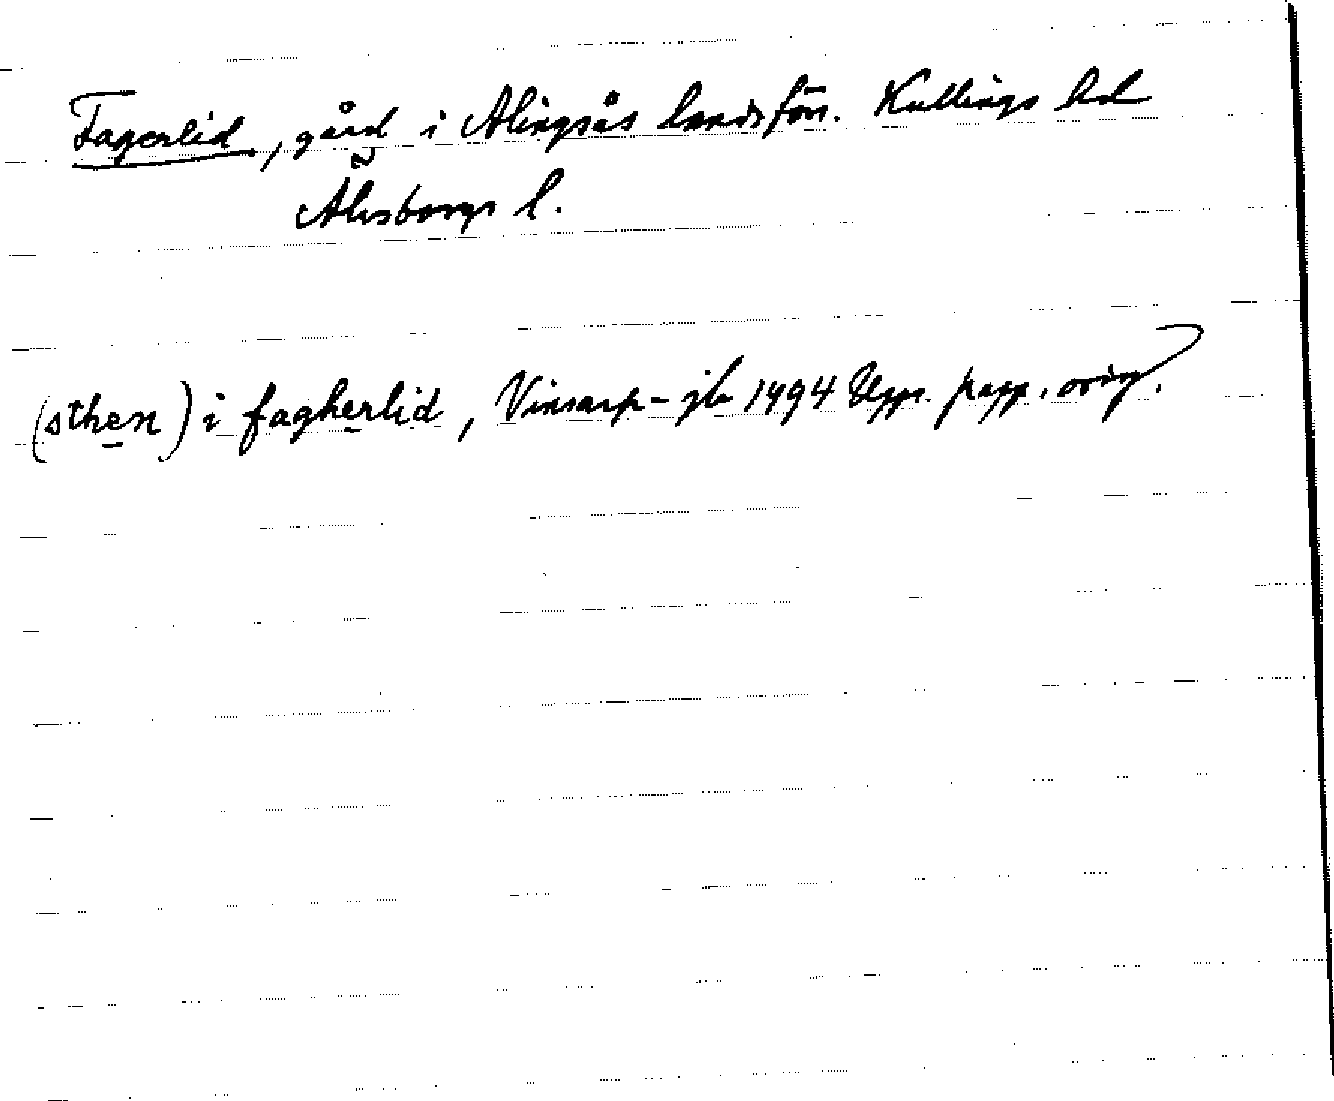 Fagerlid, gård i Alingsås landsförs. Kullings hd
Älvsborgs l.
(sthen) i fagherlid, Vinsarp-jb 1494 Upps. papp. orig.